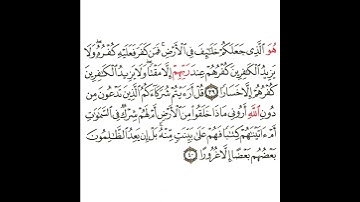 هُوَ ٱلَّذِى جَعَلَكُمْ خَلَٰٓئِفَ فِى ٱلْأَرْضِ ۚ فَمَن كَفَرَ فَعَلَيْهِ كُفْرُهُۥ ۖ وَلَا
يَزِيدُ ٱلْكَٰفِرِينَ كُفْرُهُمْ عِندَ رَبِّهِمْ إِلَّا مَقْتًا ۖ وَلَا يَزِيدُ ٱلْكَٰفِرِينَ
كُفْرُهُمْ إِلَّا خَسَارًا ٣٩ قُلْ أَرَءَيْتُمْ شُرَكَآءَكُمُ ٱلَّذِينَ تَدْعُونَ مِن
دُونِ ٱللَّهِ أَرُونِى مَاذَا خَلَقُوا۟ مِنَ ٱلْأَرْضِ أَمْ لَهُمْ شِرْكٌ فِى ٱلسَّمَٰوَٰتِ
أَمْ ءَاتَيْنَٰهُمْ كِتَٰبًا فَهُمْ عَلَىٰ بَيِّنَتٍ مِّنْهُ ۚ بَلْ إِن يَعِدُ ٱلظَّٰلِمُونَ
بَعْضُهُم بَعْضًا إِلَّا غُرُورًا ٤٠